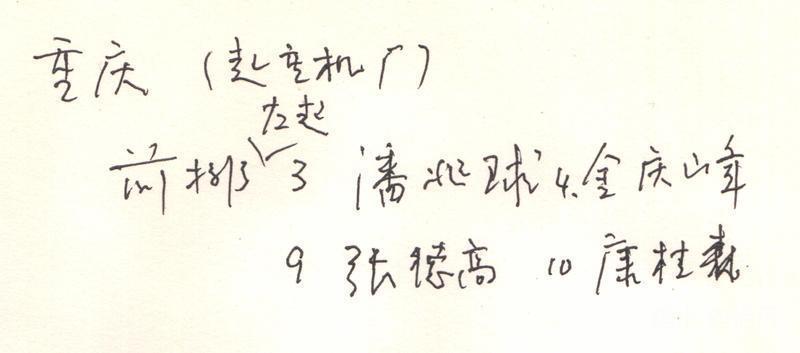 重庆 (起重机厂)
左起
前排 3 潘兆球 4.金庆山年
9 张德高 10 康桂森